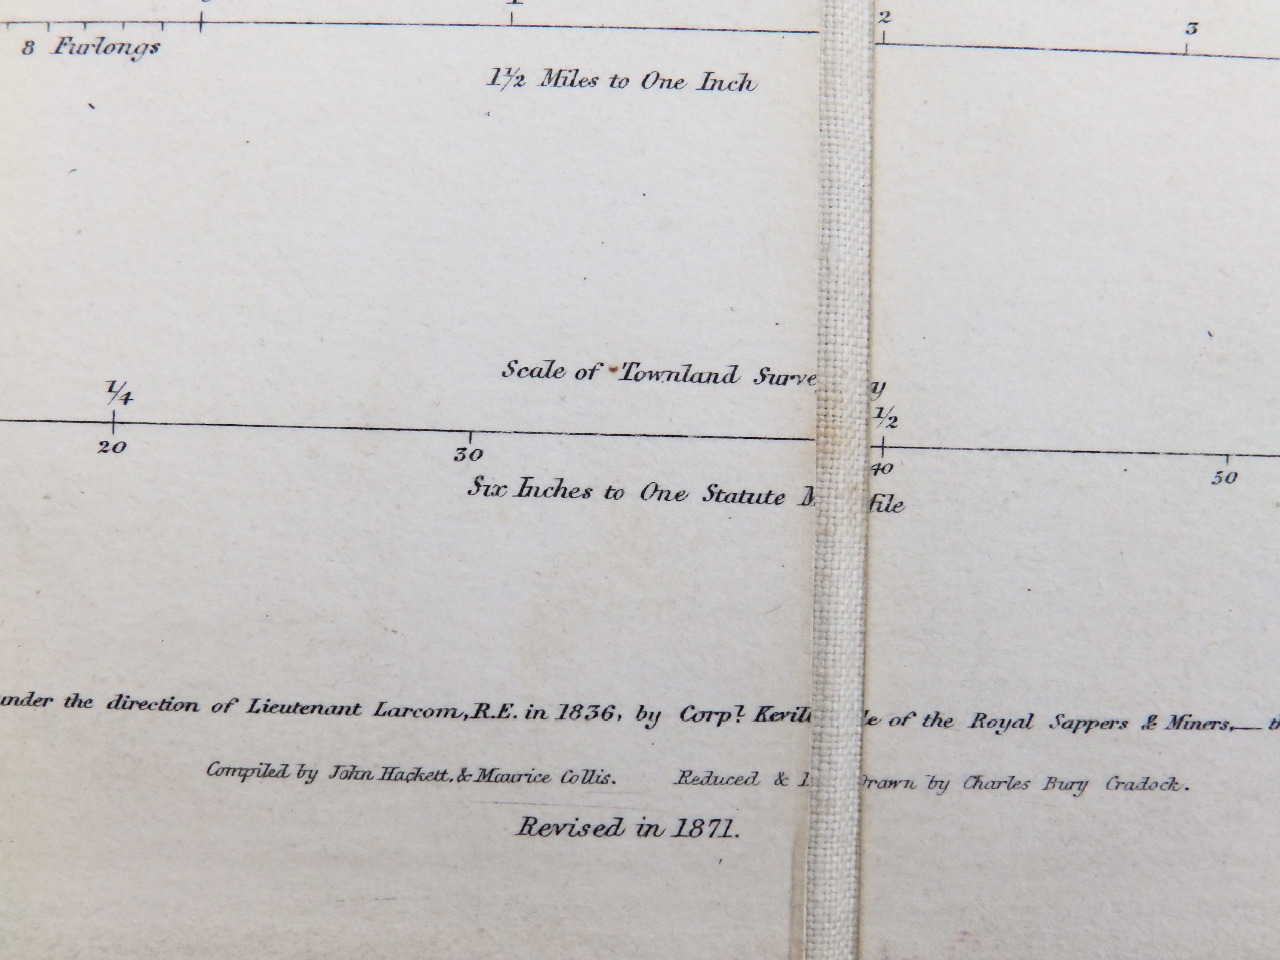 2 3
8 Furlongs
1½ Miles to One Inch
Scale of Townland Survey
¼ ½
20 30 40 50
Six Inches to One Statute Mile
under the direction of Lieutenant Larcom, R.E. in 1836, by Corpl. Keville of the Royal Sappers & Miners,—
Compiled by John Hackett, & Maurice Collis. Reduced & Drawn by Charles Bury Cradock.
Revised in 1871.